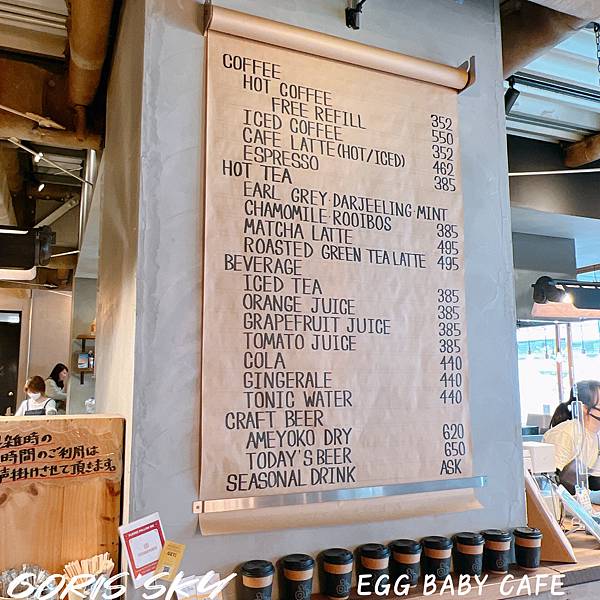 COFFEE
HOT COFFEE 352
FREE REFILL 550
ICED COFFEE 352
CAFE LATTE(HOT/ICED) 462
ESPRESSO 385
HOT TEA
EARL GREY·DARJEELING·MINT
CHAMOMILE·ROOIBOS 385
MATCHA LATTE 495
ROASTED GREEN TEA LATTE 495
BEVERAGE
ICED TEA 385
ORANGE JUICE 385
GRAPEFRUIT JUICE 385
TOMATO JUICE 385
COLA 440
GINGERALE 440
TONIC WATER 440
CRAFT BEER
AMEYOKO DRY 620
TODAY'S BEER 650
SEASONAL DRINK ASK
雑時の
時間のご利用は
声掛けさせて頂きます。
DORIS' SKY
EGG BABY CAFE